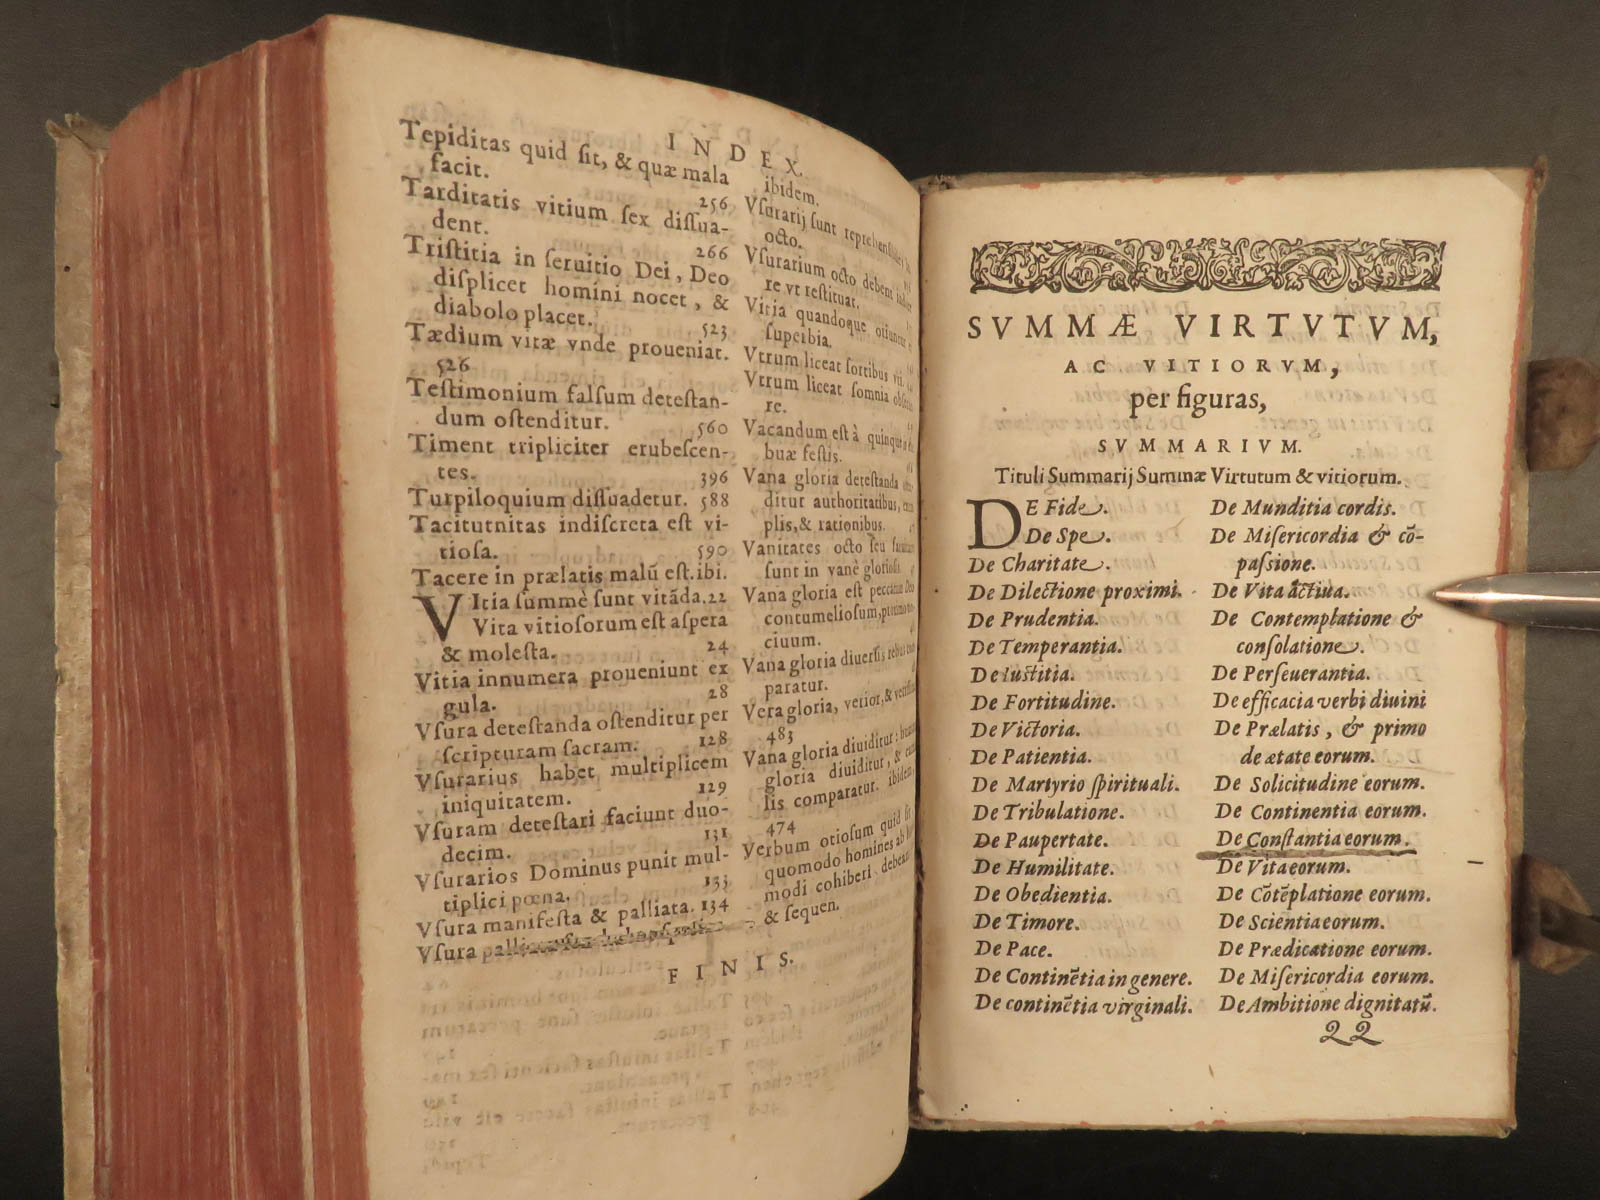 INDEX.
Tepiditas quid ſit, & quæ mala
facit. 256
Tarditatis vitium ſex diſſua-
dent. 266
Triſtitia in ſeruitio Dei, Deo
diſplicet homini nocet, &
diabolo placet. 523
Tædium vitæ vnde proueniat.
526
Teſtimonium falſum deteſtan-
dum oſtenditur. 560
Timent tripliciter erubeſcen-
tes. 396
Turpiloquium diſſuadetur. 588
Tacitutnitas indiſcreta eſt vi-
tioſa. 590
Tacere in prælatis malũ eſt. ibi.
VItia ſummè ſunt vitãda. 22
Vita vitioſorum eſt aſpera
& moleſta. 24
Vitia innumera proueniunt ex
gula. 28
Vſura deteſtanda oſtenditur per
ſcripturam ſacram. 128
Vſurarius habet multiplicem
iniquitatem. 129
Vſuram deteſtari faciunt duo-
decim. 131
Vſurarios Dominus punit mul-
tiplici pœna. 133
Vſura manifeſta & palliata. 134
Vſura
ibidem.
Vſurarij ſunt
octo.
Vſurarium octo debent
re vt reſtituat.
Vitia quandoque oriuntur
ſuperbia.
Vtrum liceat ſortibus vti.
Vtrum liceat ſomnia
re.
Vacandum eſt à quinque
buæ feſtis.
Vana gloria deteſtanda
ditur authoritatibus,
plis, & rationibus.
Vanitates octo ſeu
ſunt in vanè glorioſis
Vana gloria eſt peccatum Deo
contumelioſum,
ciuum.
Vana gloria diuerſis rebus
paratur.
Vera gloria, verior, &
483
Vana gloria diuiditur:
gloria diuiditur, &
lis comparatur. ibidem
474
Verbum otioſum quid ſit
quomodo homines ab
modi cohiberi debeant
& ſequen.
FINIS.
SVMMÆ VIRTVTVM,
AC VITIORVM,
per figuras,
SVMMARIVM.
Tituli Summarij Summæ Virtutum & vitiorum.
DE Fide.
De Spe.
De Charitate.
De Dilectione proximi.
De Prudentia.
De Temperantia.
De Iuſtitia.
De Fortitudine.
De Victoria.
De Patientia.
De Martyrio ſpirituali.
De Tribulatione.
De Paupertate.
De Humilitate.
De Obedientia.
De Timore.
De Pace.
De Continẽtia in genere.
De continẽtia virginali.
De Munditia cordis.
De Miſericordia & cõ-
paſſione.
De Vita actiua.
De Contemplatione &
conſolatione.
De Perſeuerantia.
De efficacia verbi diuini
De Prælatis, & primo
de ætate eorum.
De Solicitudine eorum.
De Continentia eorum.
De Conſtantia eorum.
De Vita eorum.
De Cõtẽplatione eorum.
De Scientia eorum.
De Prædicatione eorum.
De Miſericordia eorum.
De Ambitione dignitatũ.
22